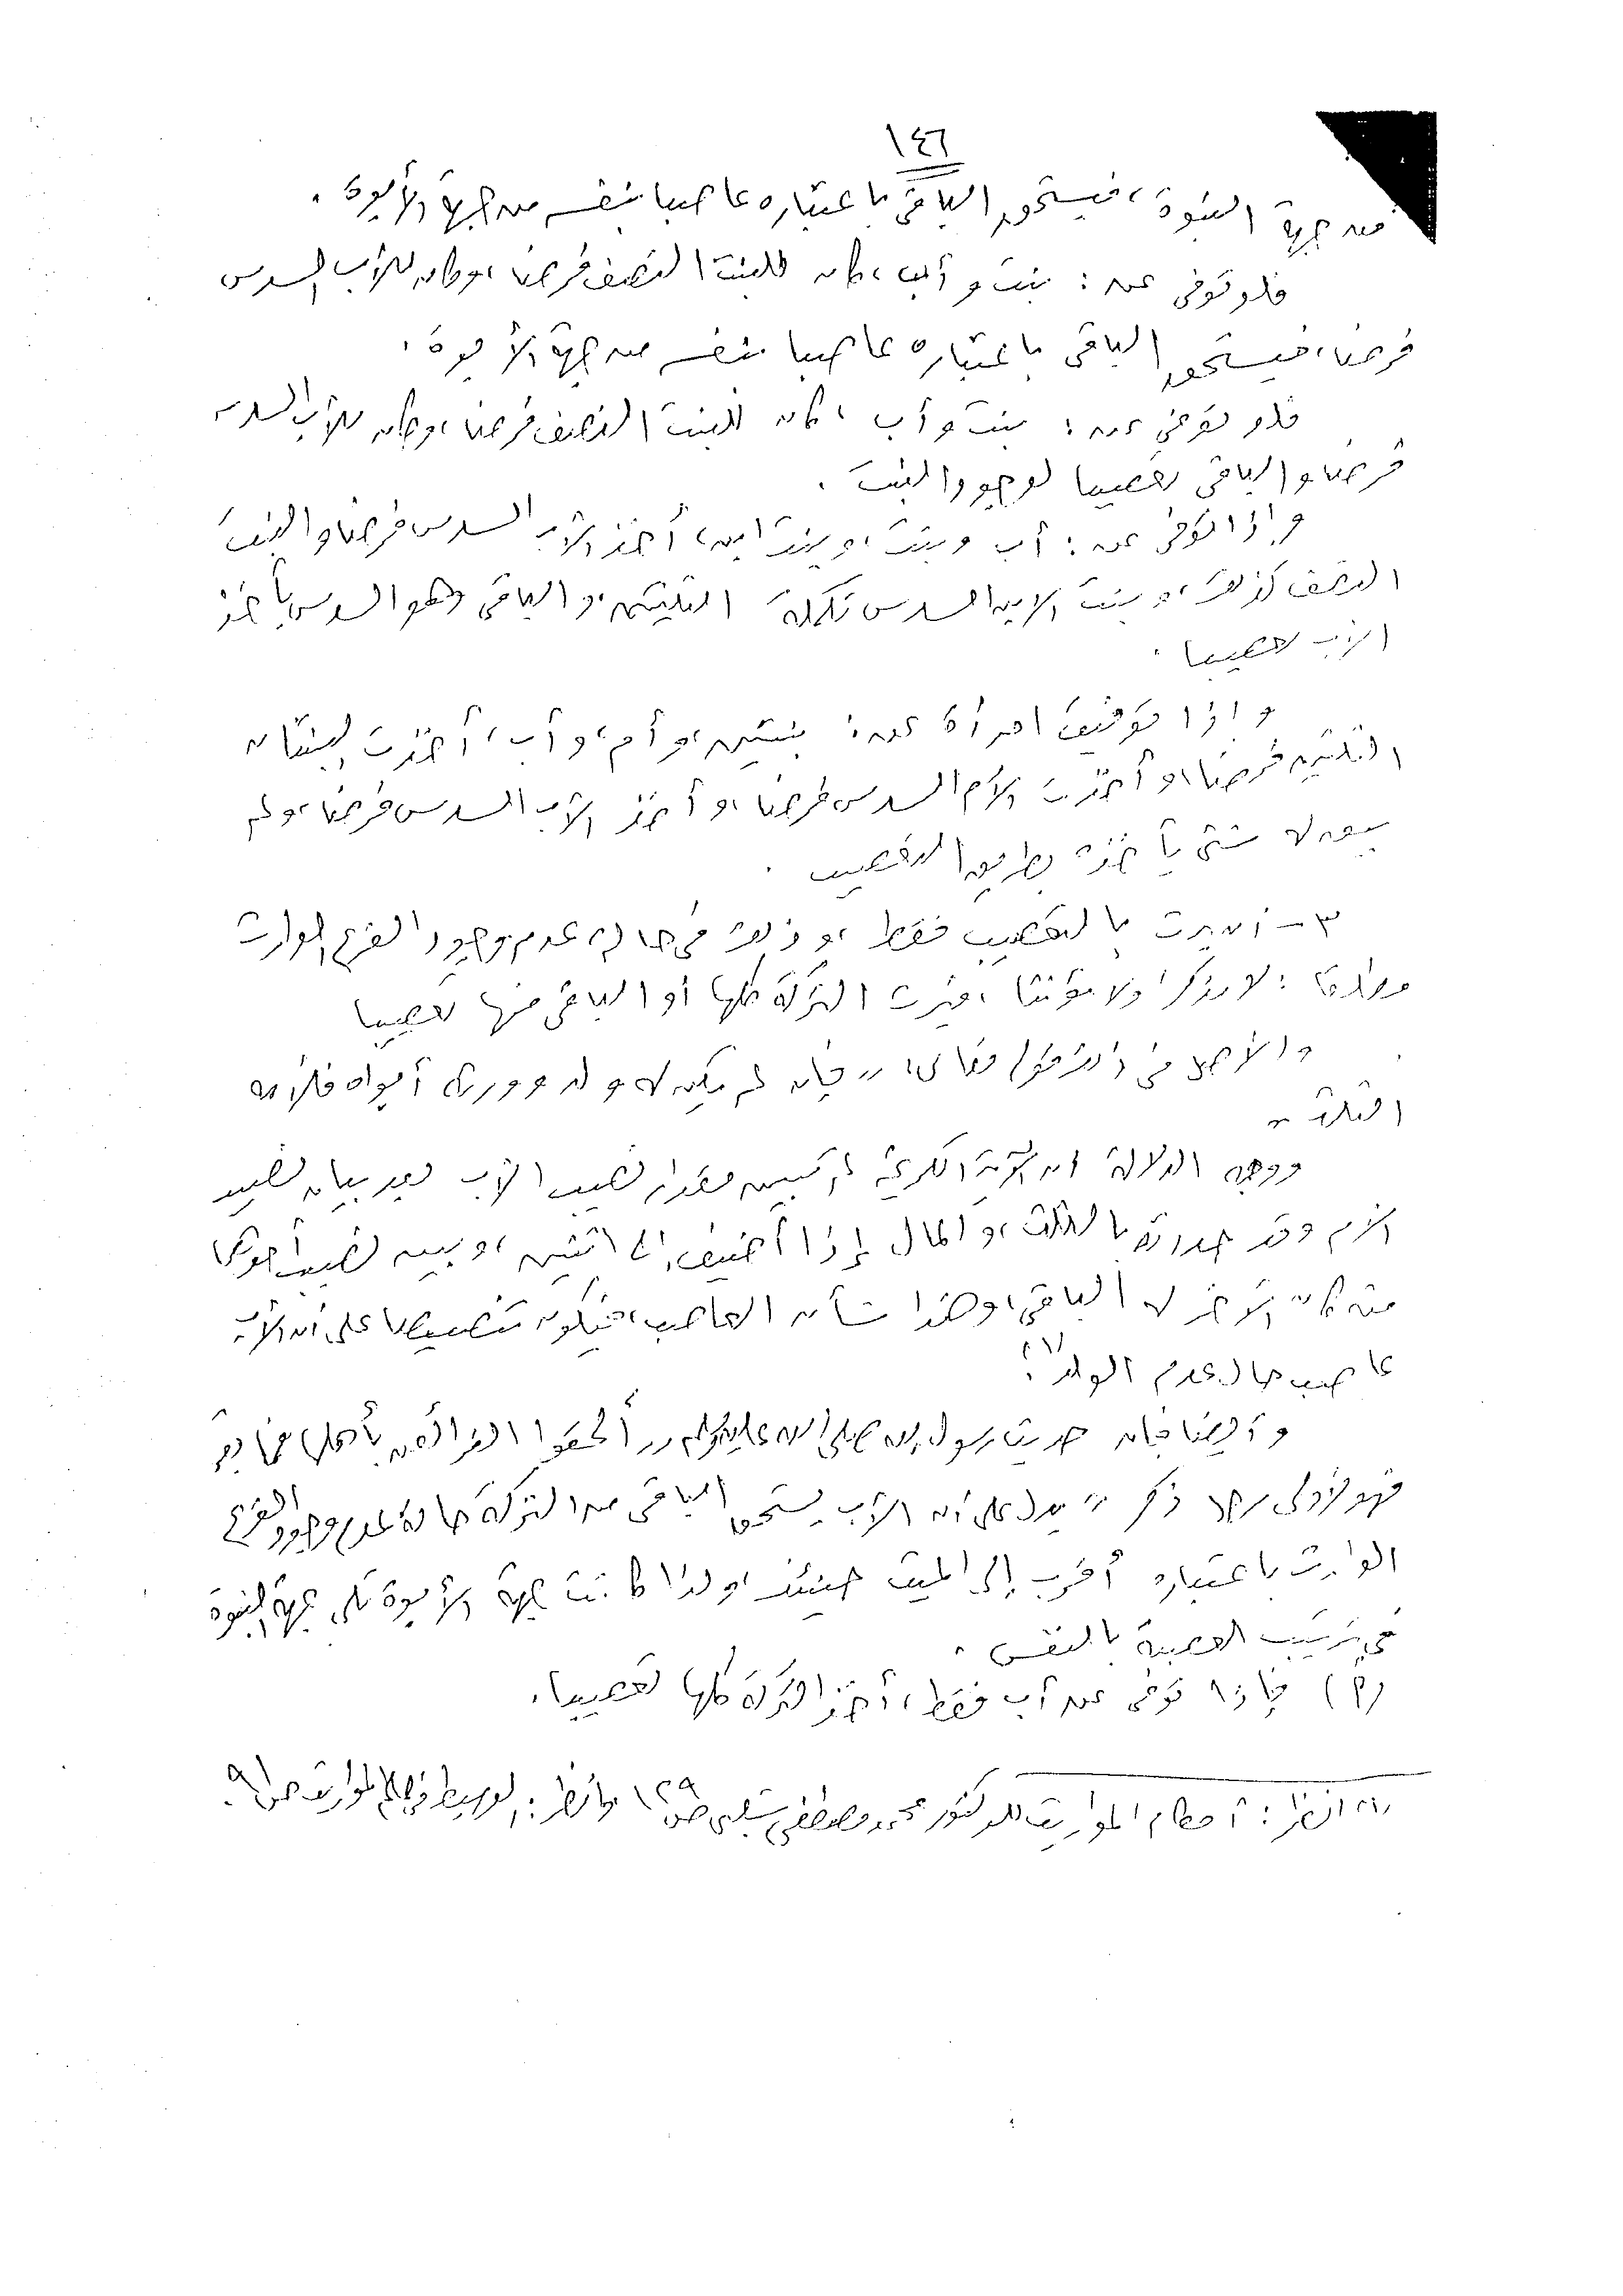 ١٤٦
من جهة البنوة، فيستحق الباقى باعتباره عاصبا بنفسه من جهة الأبوة.
فلو توفى عن: بنت وأب، كان للبنت النصف فرضا، وكان للأب السدس
فرضا، فيستحق الباقى باعتباره عاصبا بنفسه من جهة الأبوة.
فلو توفى عن: بنت وأب، كان للبنت النصف فرضا، وكان للأب السدس
فرضا والباقى تعصيبا لوجود البنت.
وإذا توفى عن: أب وبنت، وبنت ابن، أخذ الأب السدس فرضا والبنت
النصف كذلك، وبنت الابن السدس تكملة الثلثين، والباقى وهو السدس يأخذه
الأب تعصيبا.
وإذا توفيت امرأة عن: بنتين، وأم، وأب، أخذت البنتان
الثلثين فرضا، وأخذت الأم السدس فرضا، وأخذ الأب السدس فرضا، ولم
يبق له شئ يأخذه بطريق التعصيب.
٣- أن يرث بالتعصيب فقط، وذلك فى حالة عدم وجود الفرع الوارث
مطلقا: لا مذكرا ولا مؤنثا، فيرث التركة كلها أو الباقى منها تعصيبا
والأصل فى ذلك قوله تعالى: "فإن لم يكن له ولد وورثه أبواه فلأمه
الثلث"
ووجه الدلالة أن الآية الكريمة لم تبين مقدار نصيب الأب بعد بيان نصيب
الأم وقد حددته بالثلث، والمال إذا أضيف إلى اثنين، وبين نصيب أحدهما
منه كان الآخر له الباقى، وهذا شأن العاصب، فيكون تنصيصا على أن الأب
عاصب حال عدم الولد(١).
وأيضا فإن حديث رسول الله صلى الله عليه وسلم "ألحقوا الفرائض بأهلها فما بقى
فهو لأولى رجل ذكر" يدل على أن الأب يستحق الباقى من التركة حالة عدم وجود الفرع
الوارث باعتباره أقرب إلى الميت حينئذ، ولذا كانت جهة الأبوة تلى جهة البنوة
فى ترتيب العصبة بالنفس.
(٢) فإذا توفى عن أب فقط، أخذ التركة كلها تعصيبا.
(١) انظر: أحكام المواريث للدكتور محمد مصطفى شلبى ص١٢٩ وانظر: الوسيط فى المواريث ص